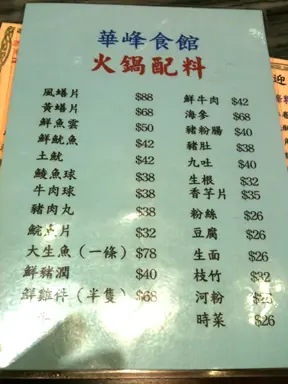 華峰食館
火鍋配料
風鱔片 $88
黃鱔片 $68
鮮魚雲 $50
鮮魷魚 $42
土魷 $42
鯪魚球 $38
牛肉球 $38
豬肉丸 $38
鯇魚片 $32
大生魚（一條） $78
鮮豬潤 $40
鮮雞件（半隻） $68
鮮牛肉 $42
海參 $68
豬粉腸 $40
豬肚 $38
九吐 $40
生根 $32
香芋片 $35
粉絲 $26
豆腐 $26
生面 $26
枝竹 $32
河粉 $26
時菜 $26
迎